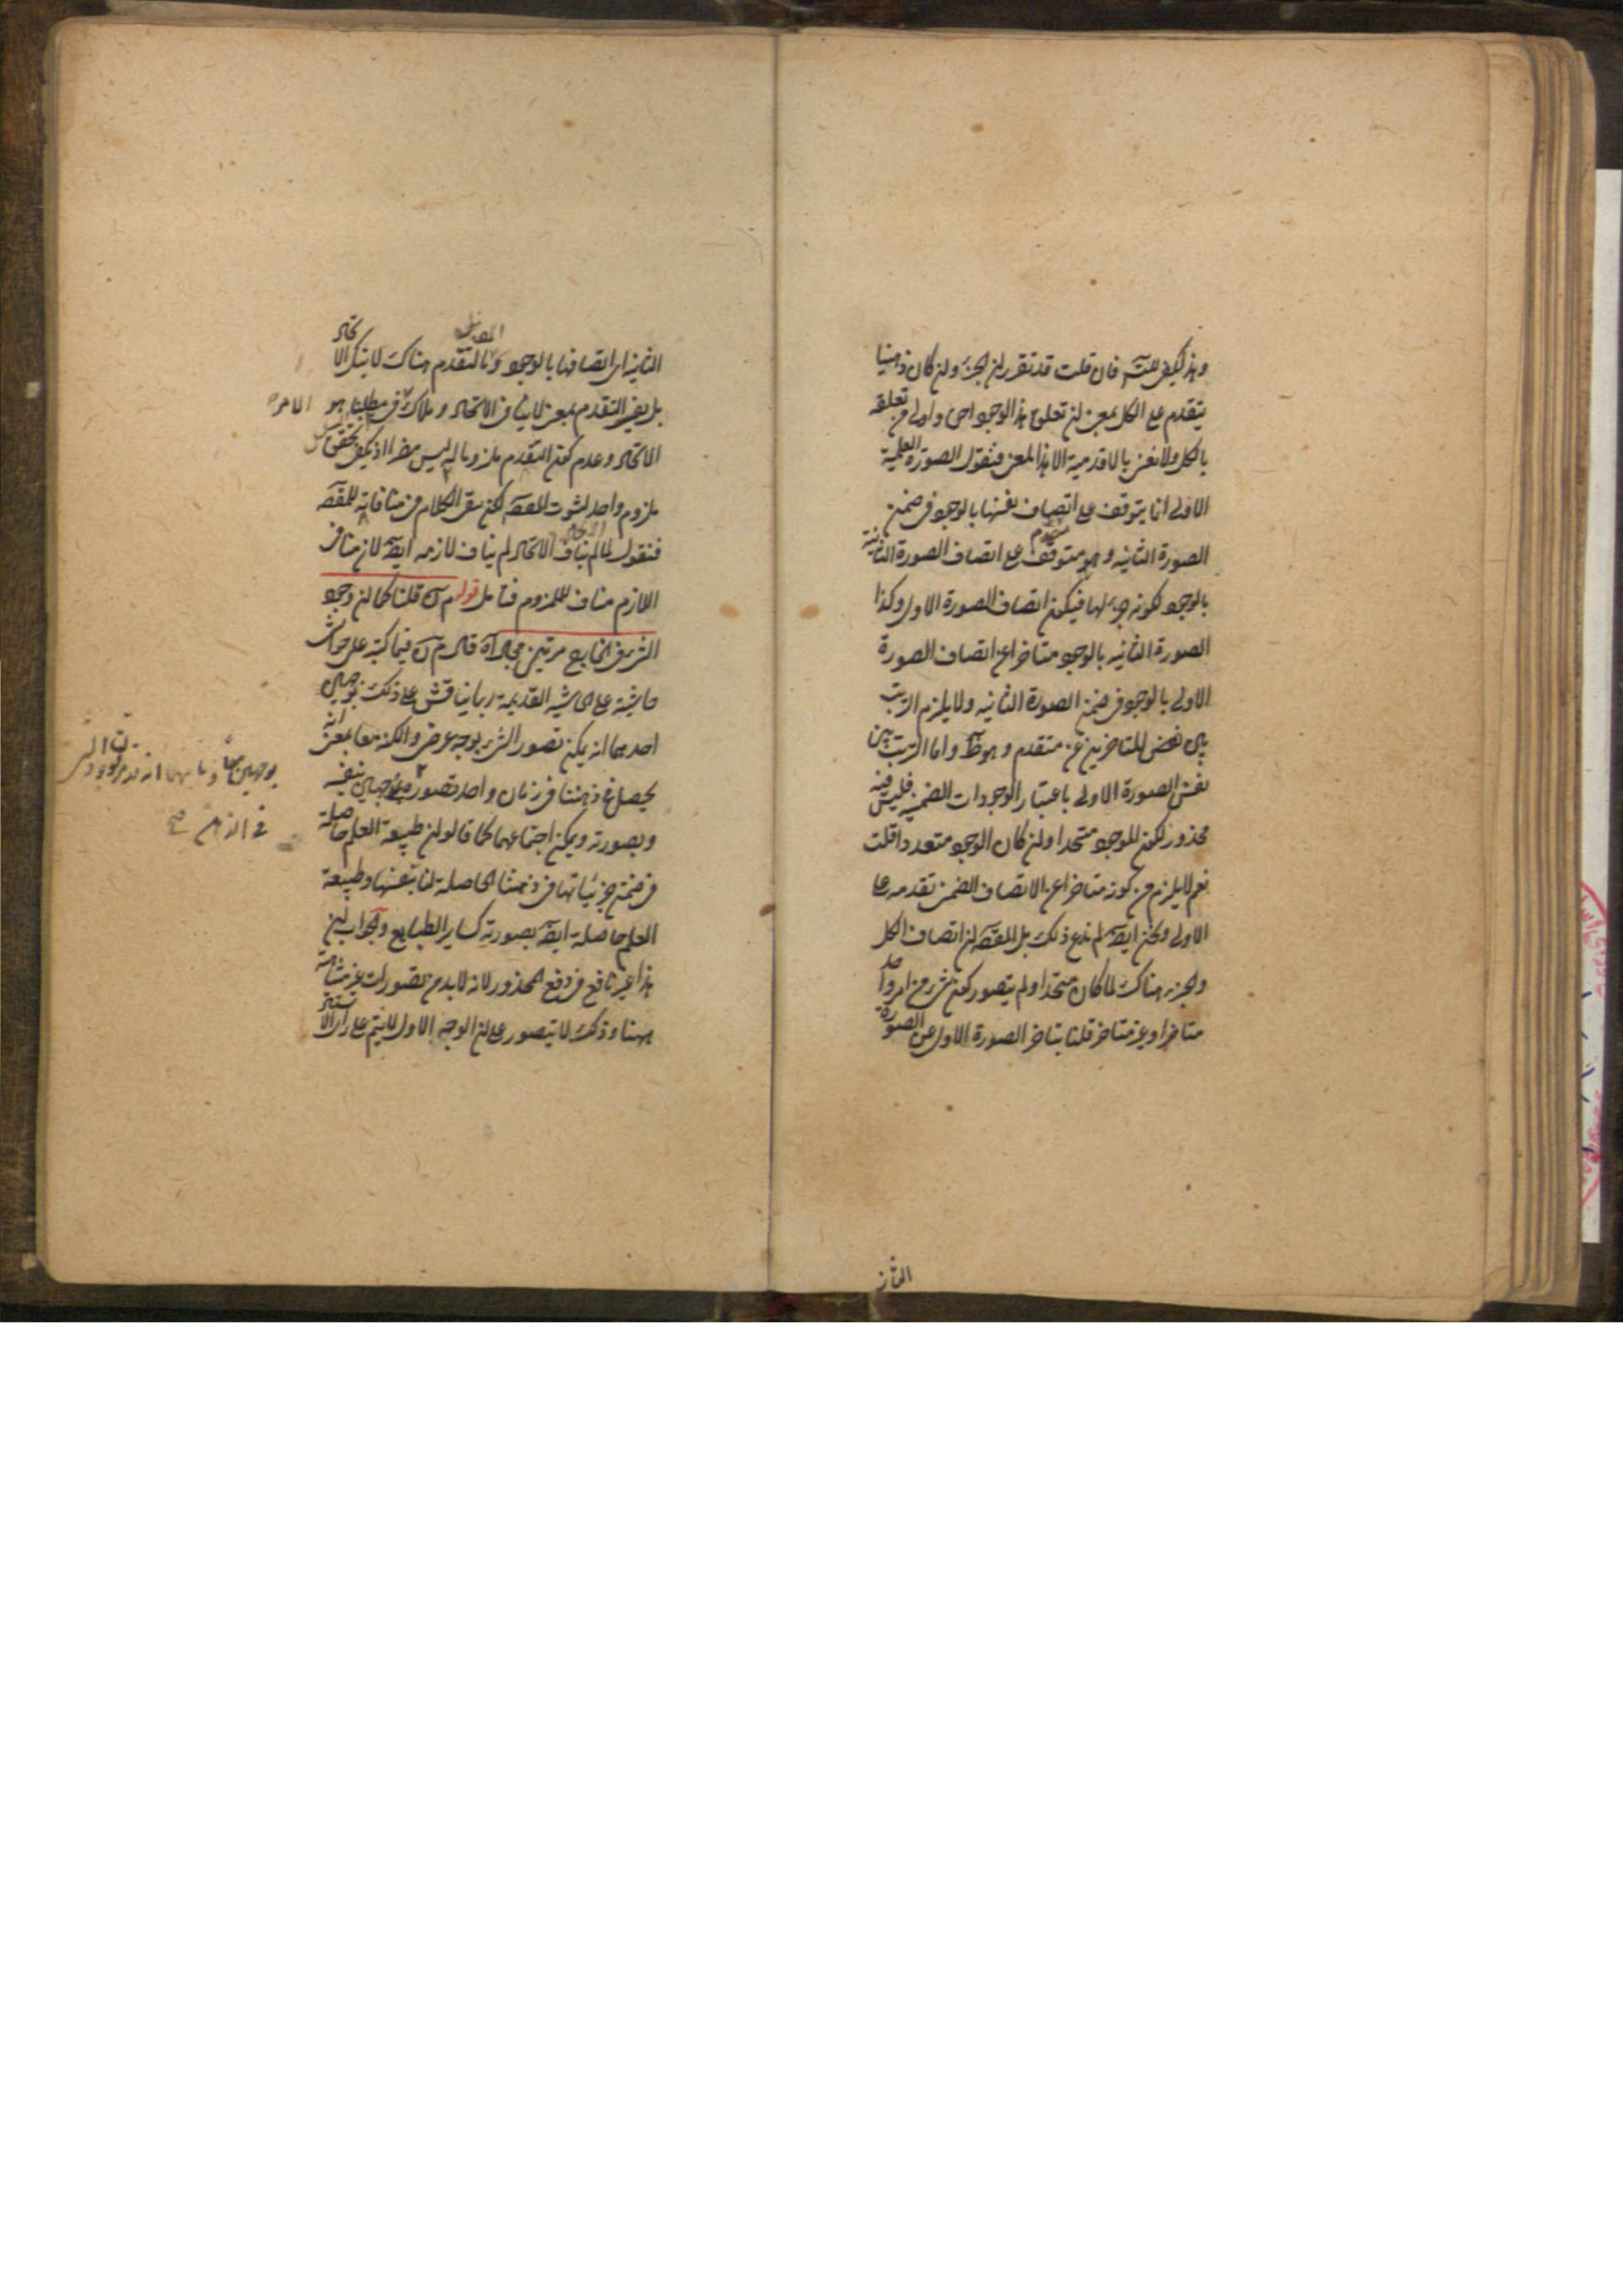 وهذا يكفى للمقصد فان قلت قد تقرر ان الجزء وان كان ذهنيا
يتقدم على الكل بمعنى ان تعلق هذا الوجود احرى واولى من تعلقه
بالكل ولا نعنى بالاقدمية الا هذا المعنى فنقول الصورة العلمية
الاولى انما يتوقف على اتصاف نفسها بالوجود فى ضمن
الصورة الثانية وهو متوقف على اتصاف الصورة الثانية
بالوجود لكونه جزء لها فيكون اتصاف الصورة الاولى وكذا
الصورة الثانية بالوجود متاخرا عن اتصاف الصورة
الاولى بالوجود فى ضمن الصورة الثانية ولا يلزم الترتب
بين بعض المتاخرين عن متقدم وهو ظ واما الترتب بين
نفس الصورة الاولى باعتبار الوجودات الضمنية فليس فيه
محذور لكون الموجود متحدا وان كان الوجود متعددا قلت
نعم لا يلزم من كونه متاخرا عن الاتصاف الضمنى تقدمه على
الاولى ونحن ايضا لم ندع ذلك بل المقصد ان اتصاف الكل
والجزء هناك لما كان متحدا ولم يتصور كون شىء من امر واحد
متاخرا وغير متاخر قلنا بتاخر الصورة الاولى عن الصورة
الثانى
الثانية اى اتصافها بالوجود والتقدم هناك لا ينكر الاتحاد
بل يفيد التقدم بمعنى لا ينافى الاتحاد وملاك فى مطلبنا هو الامر
الاتحاد وعدم كون التقدم ملزوما له ليس مضرا اذ يكفى تحقق
ملزوم واحد لثبوت المقصد لكن بقى الكلام فى منافاته للمقصد
فنقول لما لم يناف الاتحاد لم يناف لازمه ايضا لان منافى
اللازم مناف للملزوم فتامل قوله م قلنا كما ان وجود
الشىء فى الخارج مرتين محال اه قال م فيما كتبه على حواشى
حاشيته على الحاشية القديمة ربما يناقش على ذلك بوجهين
احدهما انه يمكن تصور الشىء بوجه عرضى والكنه معا بمعنى انه
يحصل فى ذهننا فى زمان واحد تصوره بوجهين بنفسه
وبصورته ويمكن اجتماعهما كما قالوا ان طبيعة العلم حاصلة
فى ضمن جزئياتها فى ذهننا الحاصلة لنا بنفسها وطبيعة
العلم حاصلة ايضا بصورته كساير الطبايع والجواب ان
هذا غير نافع فى دفع المحذور لانه لا بد من تصورات غير متناهية
ههنا وذلك لا يتصور على ان الوجه الاول لا يتم على راى
بوجهين معا وثانيهما انه قد
فى الذهن صح